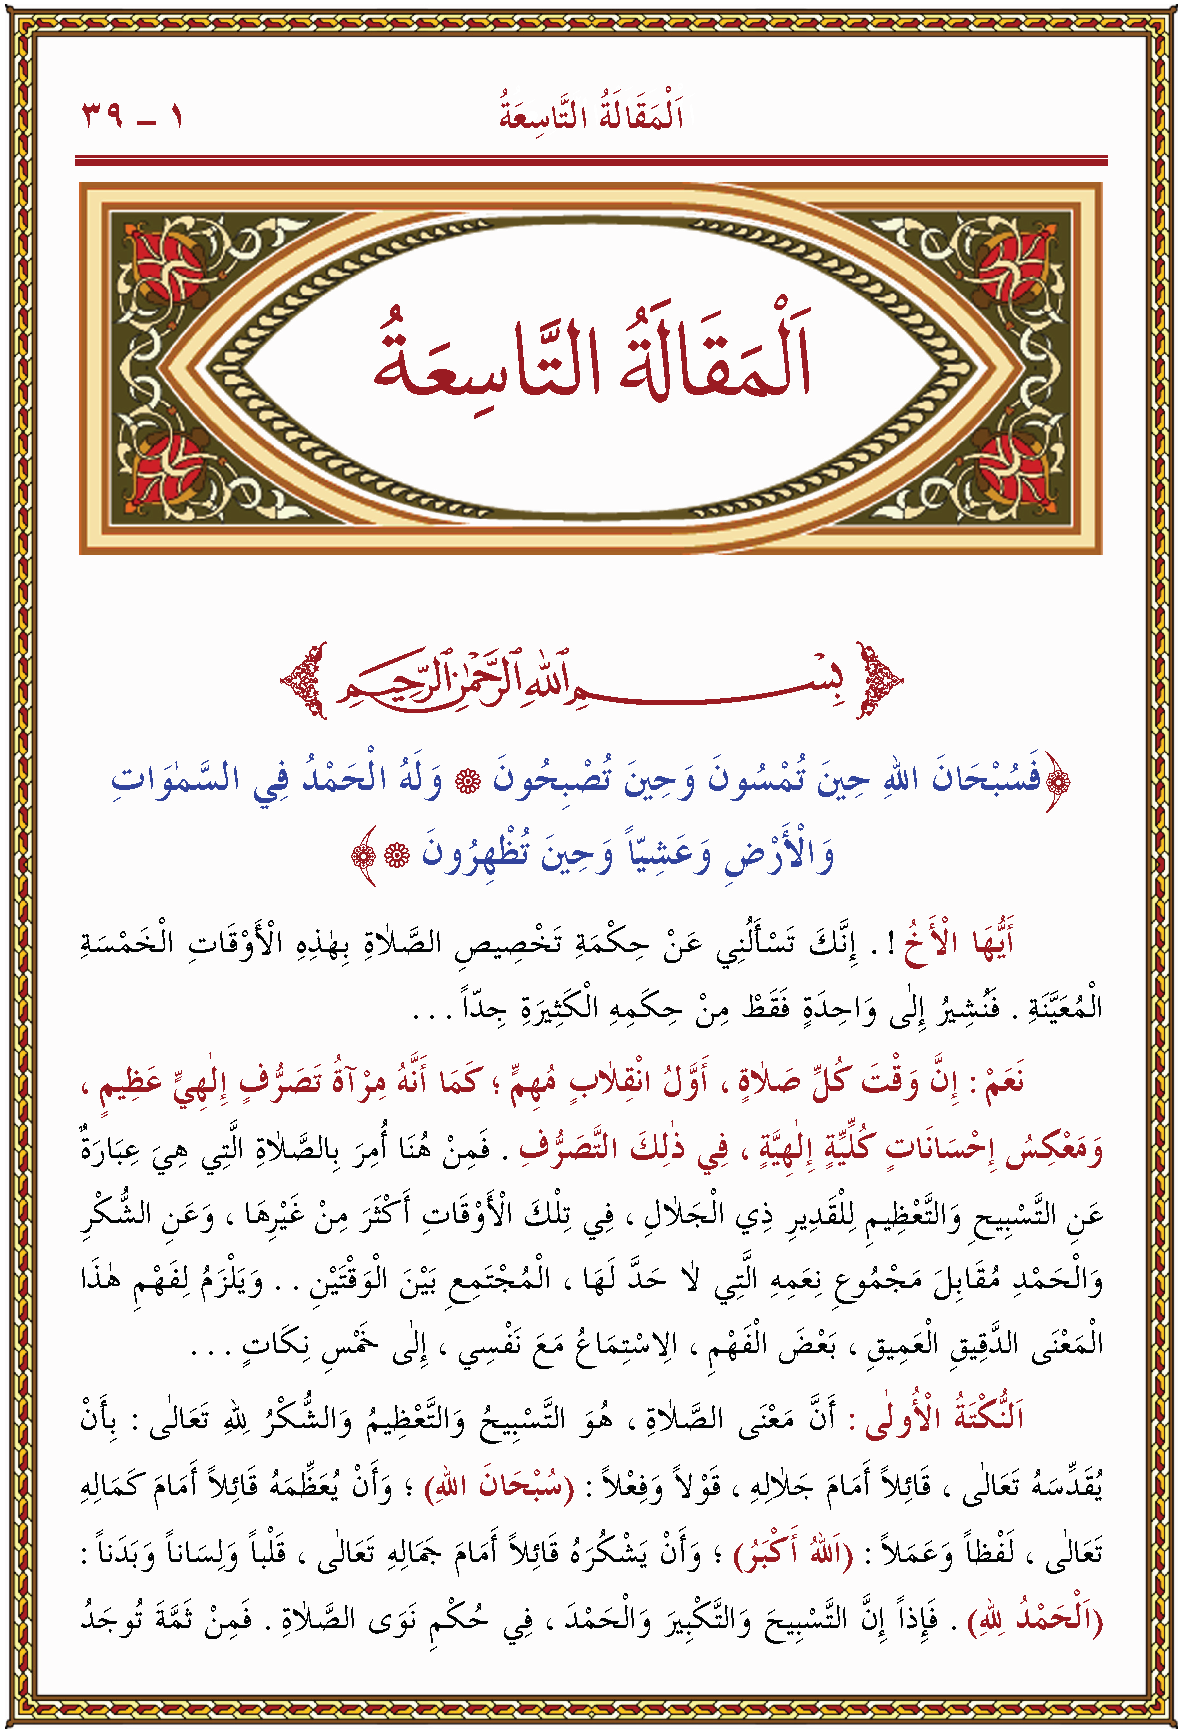 اَلْمَقَالَةُ التَّاسِعَةُ
١ – ٣٩
اَلْمَقَالَةُ التَّاسِعَةُ
بِسْمِ ٱللّٰهِ ٱلرَّحْمٰنِ ٱلرَّحِيمِ
﴿فَسُبْحَانَ اللهِ حِينَ تُمْسُونَ وَحِينَ تُصْبِحُونَ ۞ وَلَهُ الْحَمْدُ فِي السَّمٰوَاتِ
وَالْأَرْضِ وَعَشِيّاً وَحِينَ تُظْهِرُونَ ۞﴾
أَيُّهَا الْأَخُ ! . إِنَّكَ تَسْأَلُنِي عَنْ حِكْمَةِ تَخْصِيصِ الصَّلَاةِ بِهٰذِهِ الْأَوْقَاتِ الْخَمْسَةِ
الْمُعَيَّنَةِ . فَنُشِيرُ إِلٰى وَاحِدَةٍ فَقَطْ مِنْ حِكَمِهِ الْكَثِيرَةِ جِدّاً . . .
نَعَمْ : إِنَّ وَقْتَ كُلِّ صَلَاةٍ ، أَوَّلُ انْقِلَابٍ مُهِمٍّ ؛ كَمَا أَنَّهُ مِرْآةُ تَصَرُّفٍ إِلٰهِيٍّ عَظِيمٍ ،
وَمَعْكِسُ إِحْسَانَاتٍ كُلِّيَّةٍ إِلٰهِيَّةٍ ، فِي ذٰلِكَ التَّصَرُّفِ . فَمِنْ هُنَا أُمِرَ بِالصَّلَاةِ الَّتِي هِيَ عِبَارَةٌ
عَنِ التَّسْبِيحِ وَالتَّعْظِيمِ لِلْقَدِيرِ ذِي الْجَلَالِ ، فِي تِلْكَ الْأَوْقَاتِ أَكْثَرَ مِنْ غَيْرِهَا ، وَعَنِ الشُّكْرِ
وَالْحَمْدِ مُقَابِلَ مَجْمُوعِ نِعَمِهِ الَّتِي لَا حَدَّ لَهَا ، الْمُجْتَمِعِ بَيْنَ الْوَقْتَيْنِ . . وَيَلْزَمُ لِفَهْمِ هٰذَا
الْمَعْنَى الدَّقِيقِ الْعَمِيقِ ، بَعْضَ الْفَهْمِ ، الِاسْتِمَاعُ مَعَ نَفْسِي ، إِلٰى خَمْسِ نِكَاتٍ . . .
اَلنُّكْتَةُ الْأُولٰى : أَنَّ مَعْنَى الصَّلَاةِ ، هُوَ التَّسْبِيحُ وَالتَّعْظِيمُ وَالشُّكْرُ لِلهِ تَعَالٰى : بِأَنْ
يُقَدِّسَهُ تَعَالٰى ، قَائِلاً أَمَامَ جَلَالِهِ ، قَوْلاً وَفِعْلاً : (سُبْحَانَ اللهِ) ؛ وَأَنْ يُعَظِّمَهُ قَائِلاً أَمَامَ كَمَالِهِ
تَعَالٰى ، لَفْظاً وَعَمَلاً : (اَللهُ أَكْبَرُ) ؛ وَأَنْ يَشْكُرَهُ قَائِلاً أَمَامَ جَمَالِهِ تَعَالٰى ، قَلْباً وَلِسَاناً وَبَدَناً :
(اَلْحَمْدُ لِلهِ) . فَإِذاً إِنَّ التَّسْبِيحَ وَالتَّكْبِيرَ وَالْحَمْدَ ، فِي حُكْمِ نَوَى الصَّلَاةِ . فَمِنْ ثَمَّةَ تُوجَدُ